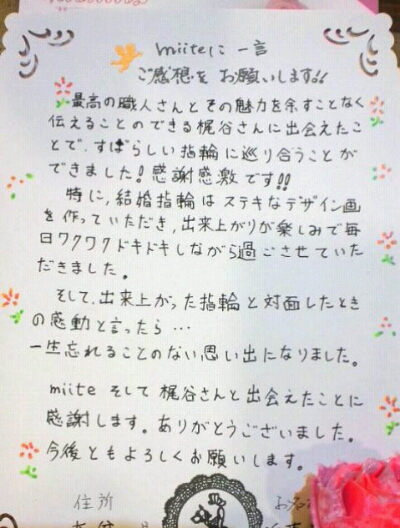 miiteに一言
ご感想をお願いします!!
最高の職人さんとその魅力を余すことなく
伝えることのできる梶谷さんに出会えたこ
とで、すばらしい指輪に巡り合うことが
できました!感謝感激です!!
特に、結婚指輪はステキなデザイン画
を作っていただき、出来上がりが楽しみで毎
日ワクワクドキドキしながら過ごさせていた
だきました。
そして、出来上がった指輪と対面したとき
の感動と言ったら…
一生忘れることのない思い出になりました。
miiteそして梶谷さんと出会えたことに
感謝します。ありがとうございました。
今後ともよろしくお願いします。
住所